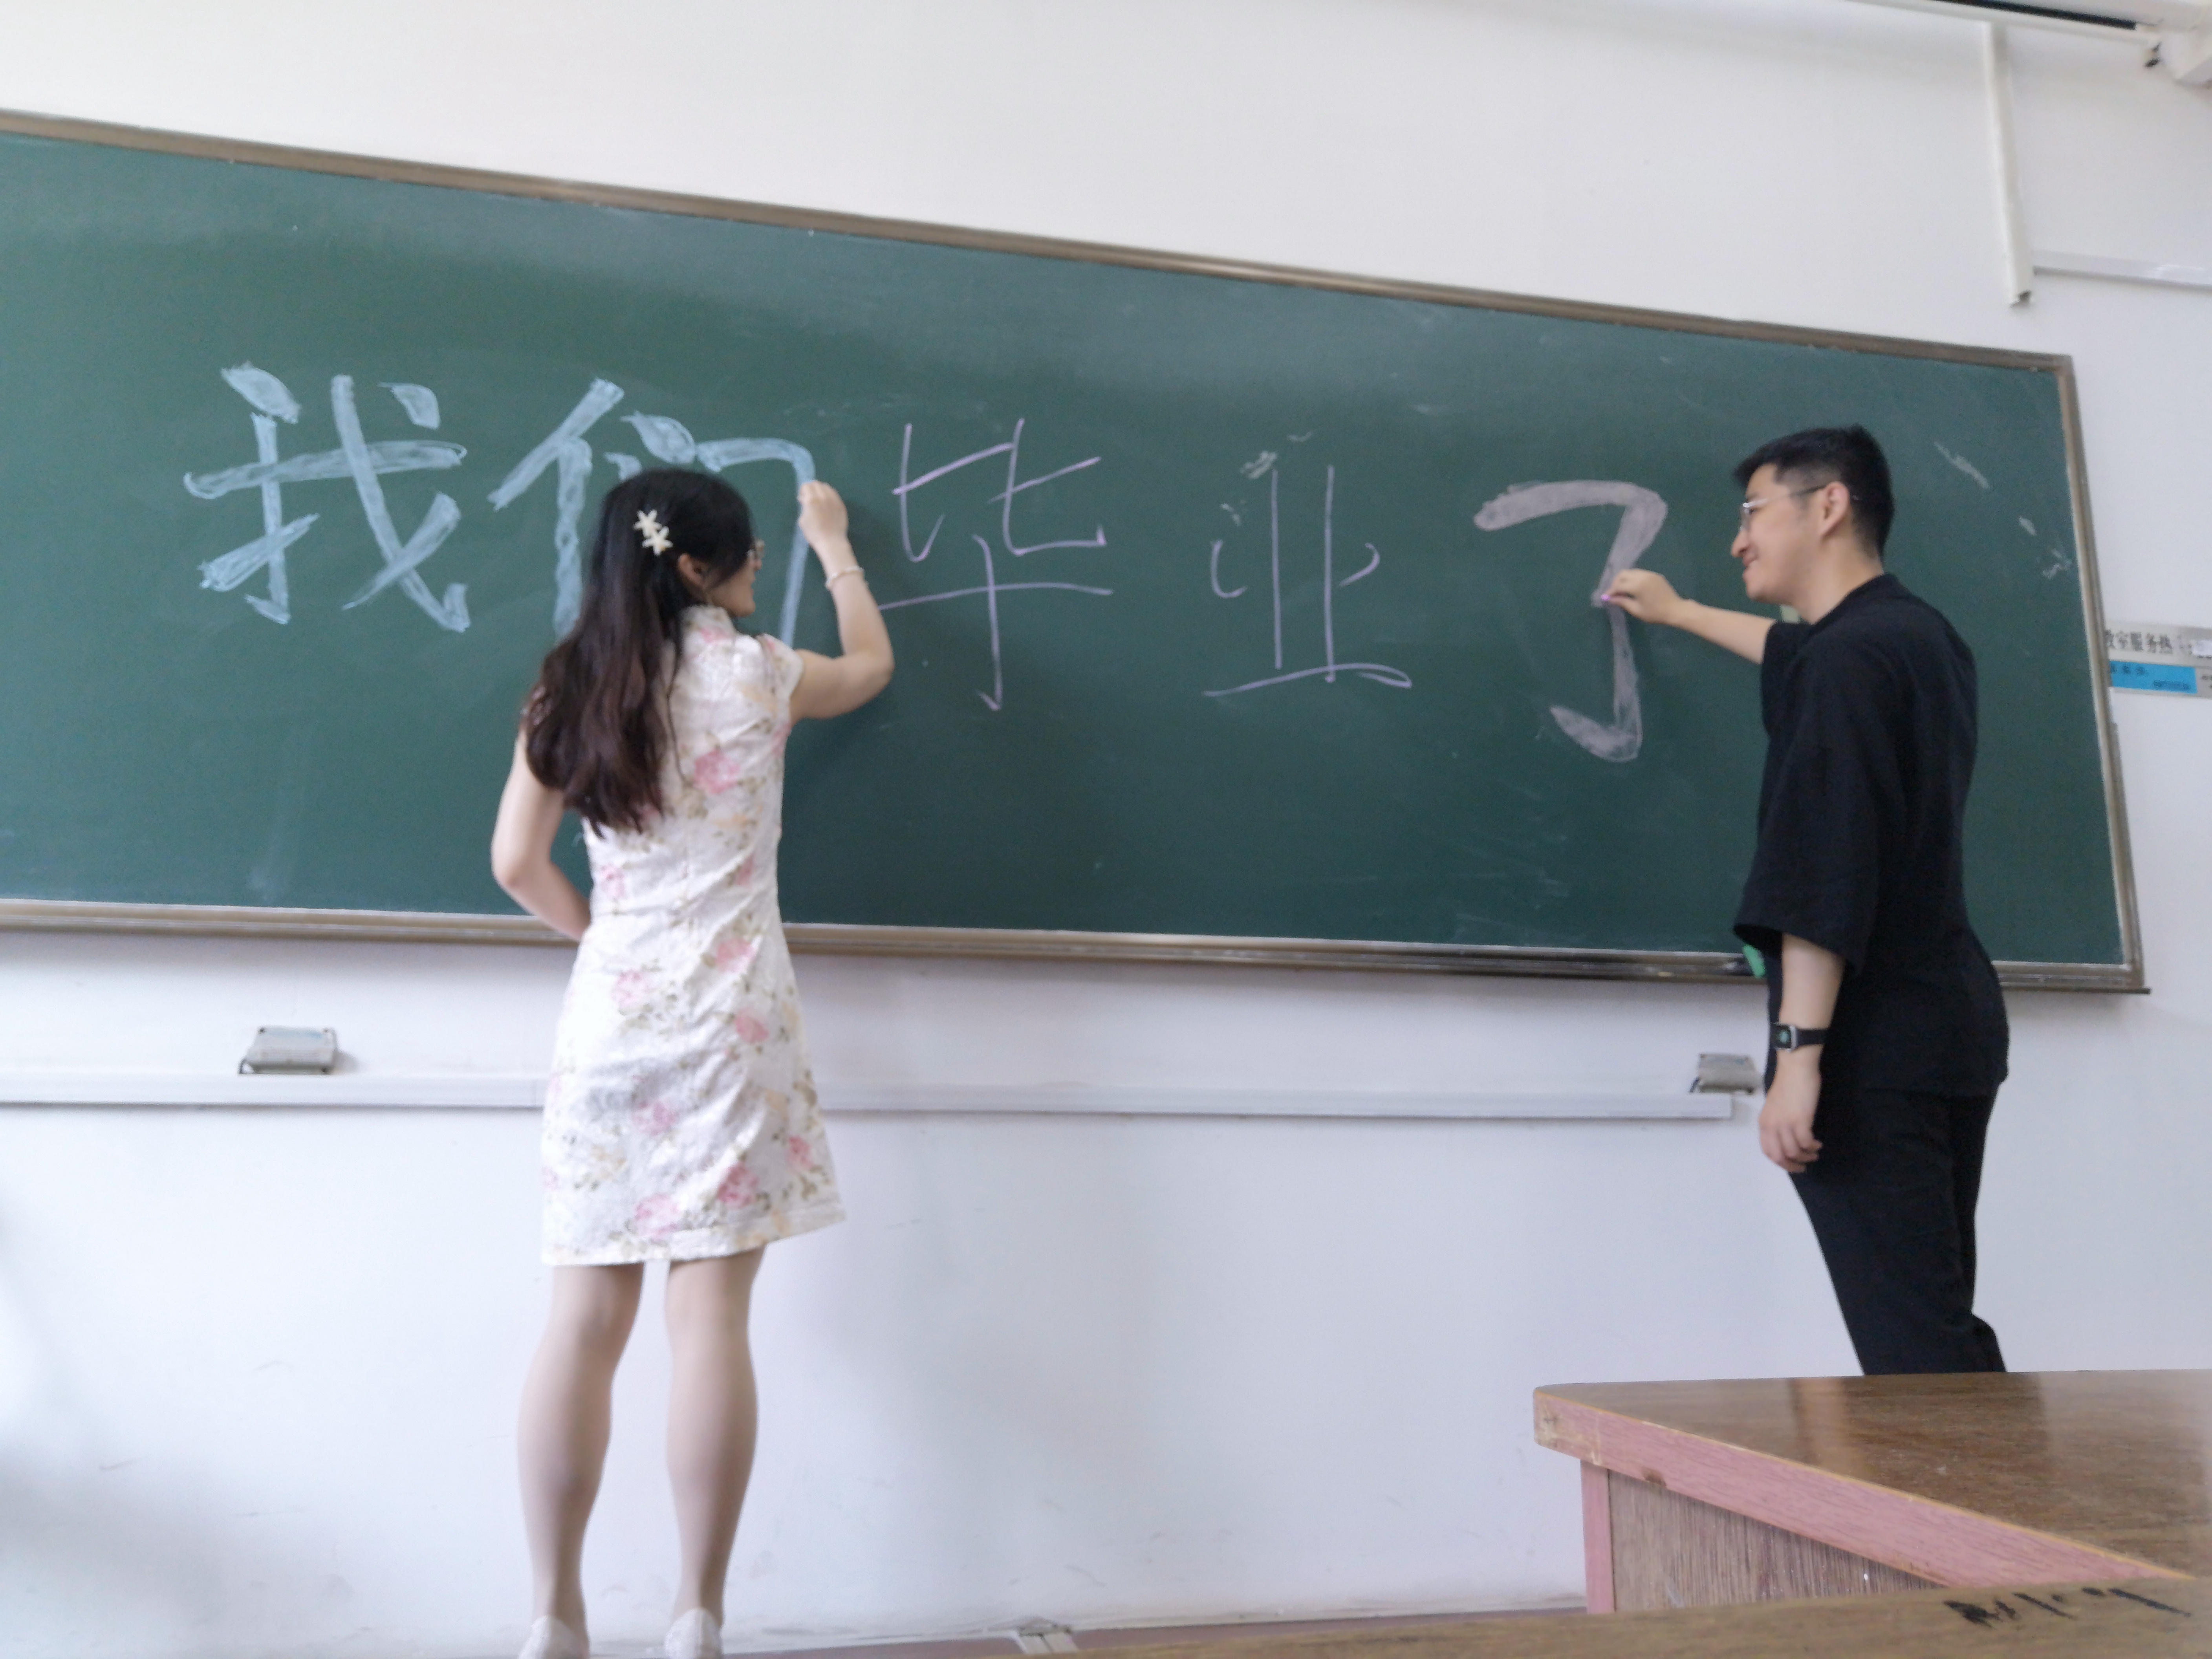 我们毕业了
教室服务热